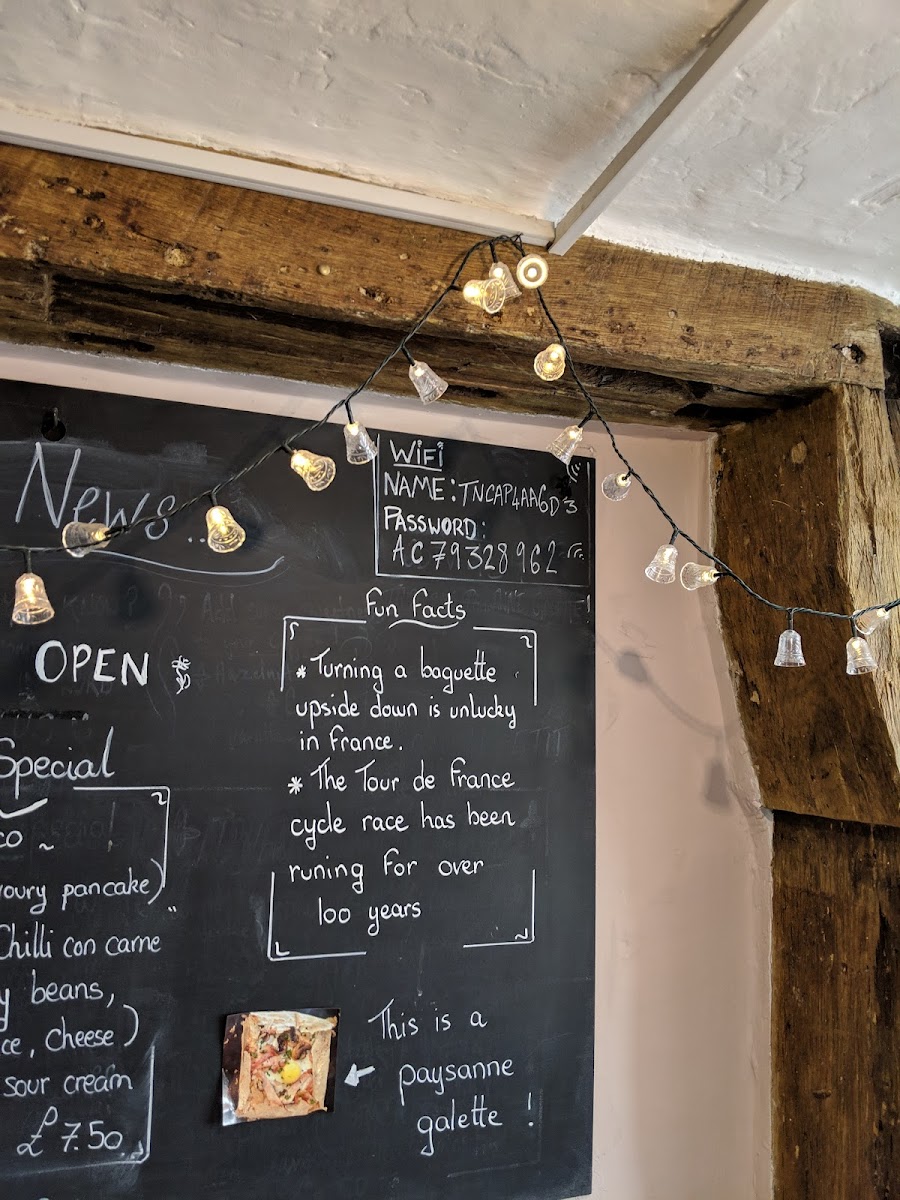 News...
OPEN
Special
(savoury pancake)
Chilli con carne
beans,
cheese)
sour cream
£7.50
WiFi
NAME: TNCAP4AA6D3
PASSWORD:
AC79328962
Fun Facts
* Turning a baguette
upside down is unlucky
in France.
* The Tour de France
cycle race has been
runing for over
100 years
This is a
paysanne
galette !